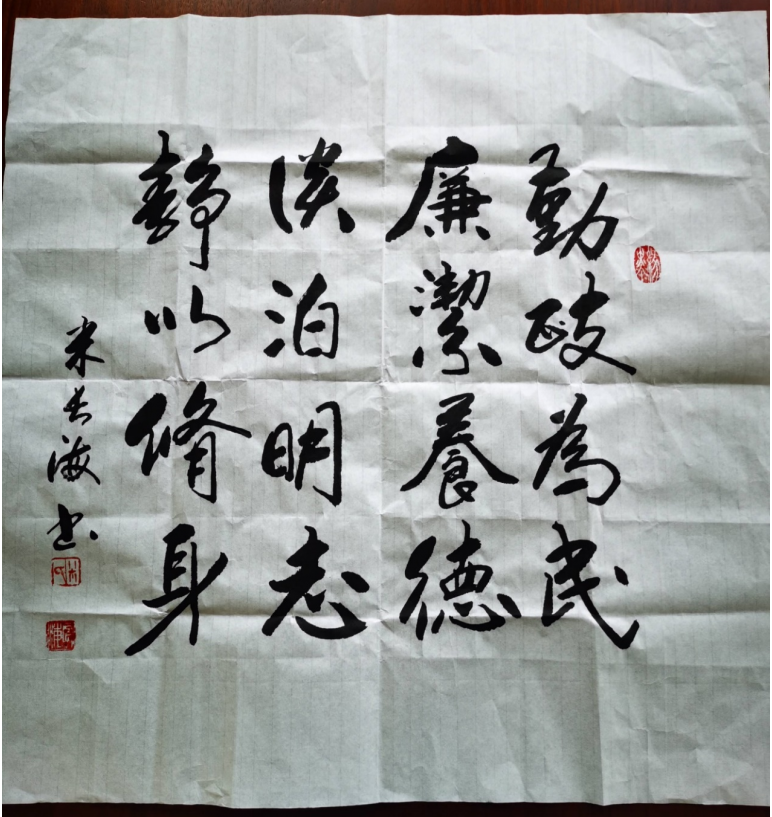 勤政為民
廉潔養德
淡泊明志
靜以脩身
米長海书